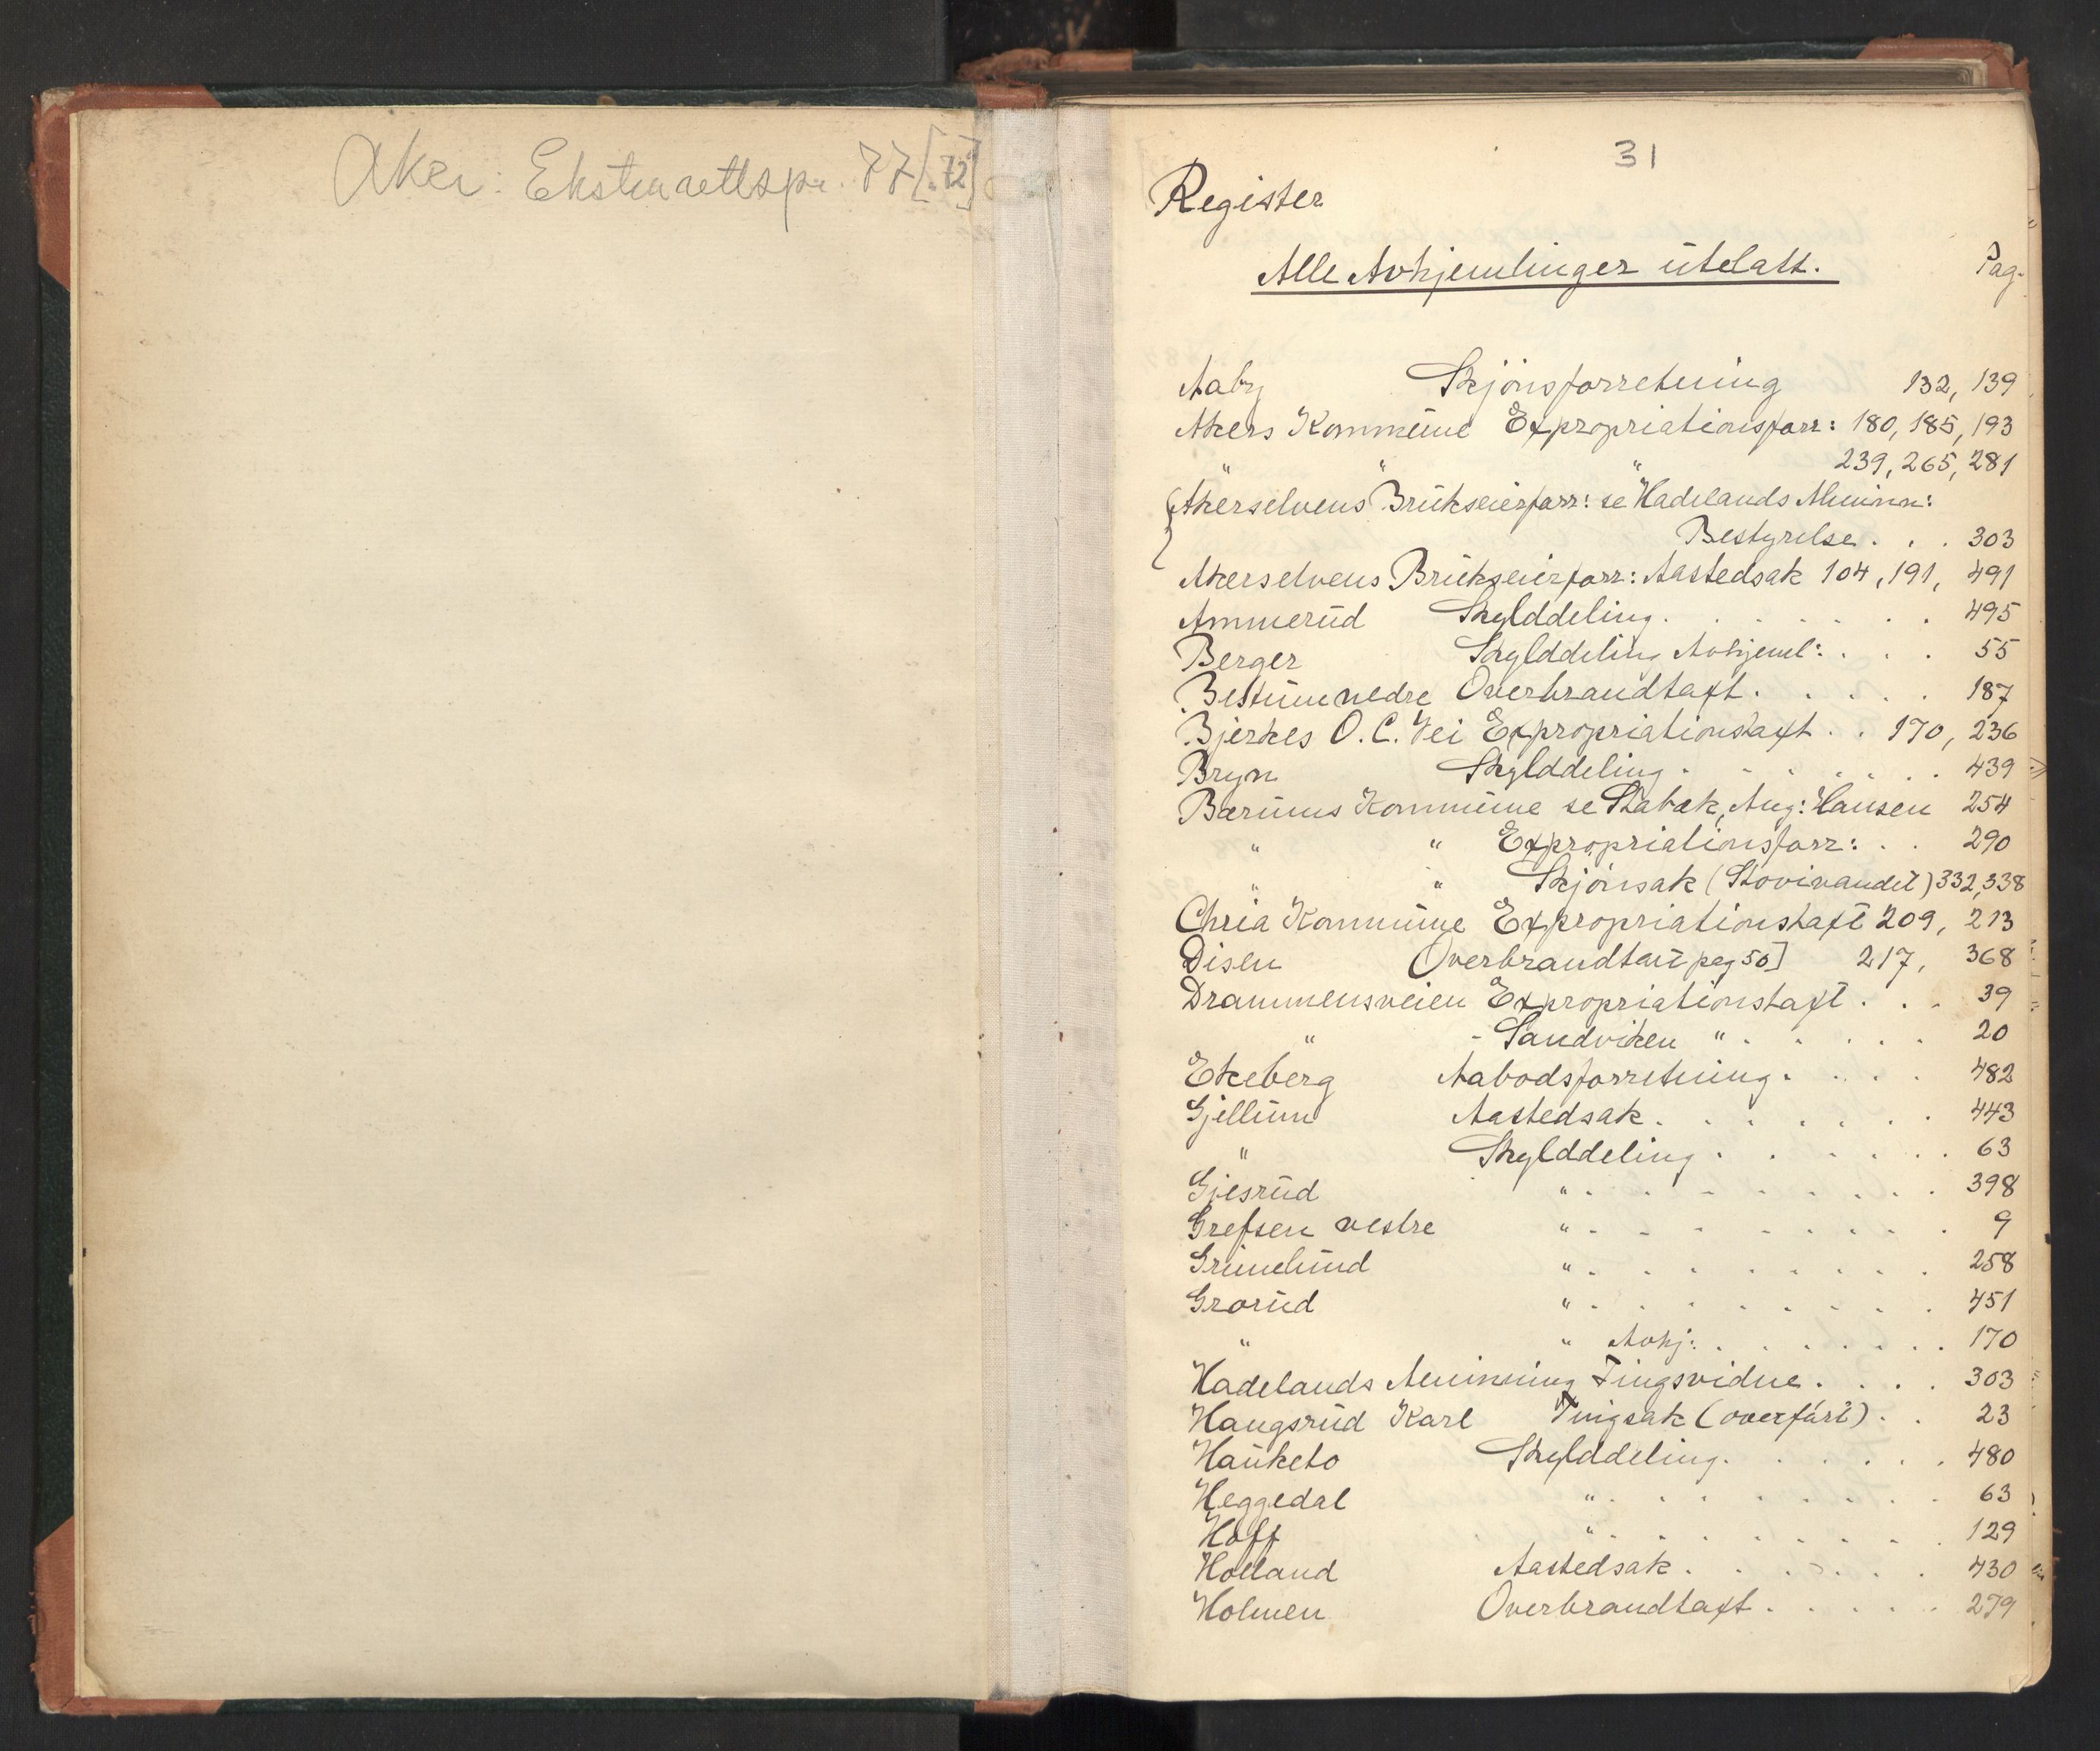 Aker: Ekstrarettspr. 77 [72]
31
Register
Alle Avhjemlinger utelatt.
Pag.
Aaby Skjönsforretning 132, 139
Akers Kommune Expropriationsforr: 180, 185, 193
" " " 239, 265, 281
Akerselvens Brukseierforr: se Hadelands Alminn:
Bestyrelse . . . 303
Akerselvens Brukseierforr: Aastedsak 104, 191, 491
Ammerud Skylddeling . . . . . . . . 495
Berger Skylddeling Avhjeml: . . . 55
Bestum nedre Overbrandtaxt . . . . . 187
Bjerkes O. C. Vei Expropriationstaxt . . 170, 236
Bryn Skylddeling . . . . . . . . 439
Bærums Kommune se Stabæk, Aug: Hansen 254
" " Expropriationsforr: . . 290
" " Skjönsak (Stovivandet) 332, 338
Chria Kommune Expropriationstaxt 209, 213
Disen Overbrandtaxt pag 50] 217, 368
Drammensveien Expropriationstaxt . . . 39
" - Sandviken " . . . . . 20
Ekeberg Aabodsforretning . . . . 482
Gjellum Aastedsak . . . . . . . 443
" Skylddeling . . . . . . 63
Gjesrud " . . . . . . . . . 398
Grefsen vestre " . . . . . . . . 9
Grimelund " . . . . . . . . 258
Grorud " . . . . . . . . 451
" " Avhj: . . . . . . . 170
Hadelands Alminning Tingsvidne . . . . 303
Haugsrud Karl Tingsak (overført) . . 23
Hauketo Skylddeling . . . . . . 480
Heggedal " . . . . . . . . 63
Hoff " . . . . . . . . 129
Holland Aastedsak . . . . . . 430
Holmen Overbrandtaxt . . . . . 279